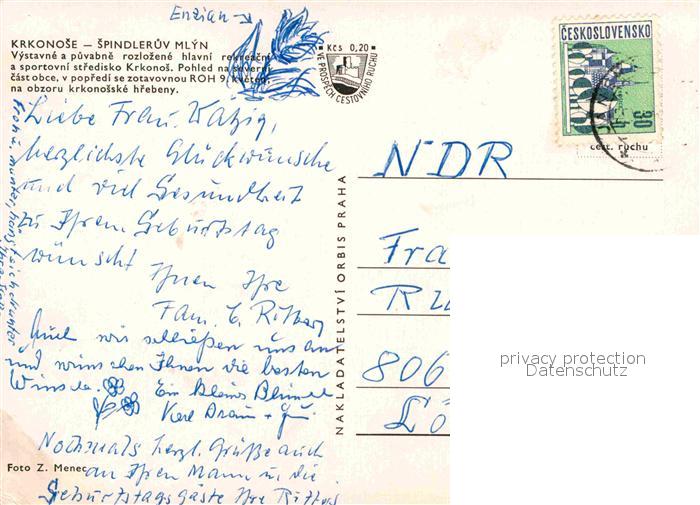 Enzian →
KRKONOŠE — ŠPINDLERŮV MLÝN
Výstavné a půvabně rozložené hlavní rekreační
a sportovní středisko Krkonoš. Pohled na severní
část obce, v popředí se zotavovnou ROH 9. května,
na obzoru krkonošské hřebeny.
Kčs 0,20
VE PROSPĚCH CESTOVNÍHO RUCHU
ČESKOSLOVENSKO
30
cest. ruchu
Liebe Frau Kätzig,
herzlichste Glückwünsche
und viel Gesundheit
zu Ihrem Geburtstag
wünscht
Ihnen Ihre
Fam. C. Ritters
Auch wir schließen uns an
und wünschen Ihnen die besten
Wünsche. Ein kleines Blümel
Karl Braun + 
Nochmals herzl. Grüße auch
an Ihren Mann u. die
Geburtstagsgäste Ihre Ritters
Foto Z. Menec
NAKLADATELSTVÍ ORBIS PRAHA
NDR
Fra
806
Lö
privacy protection
Datenschutz